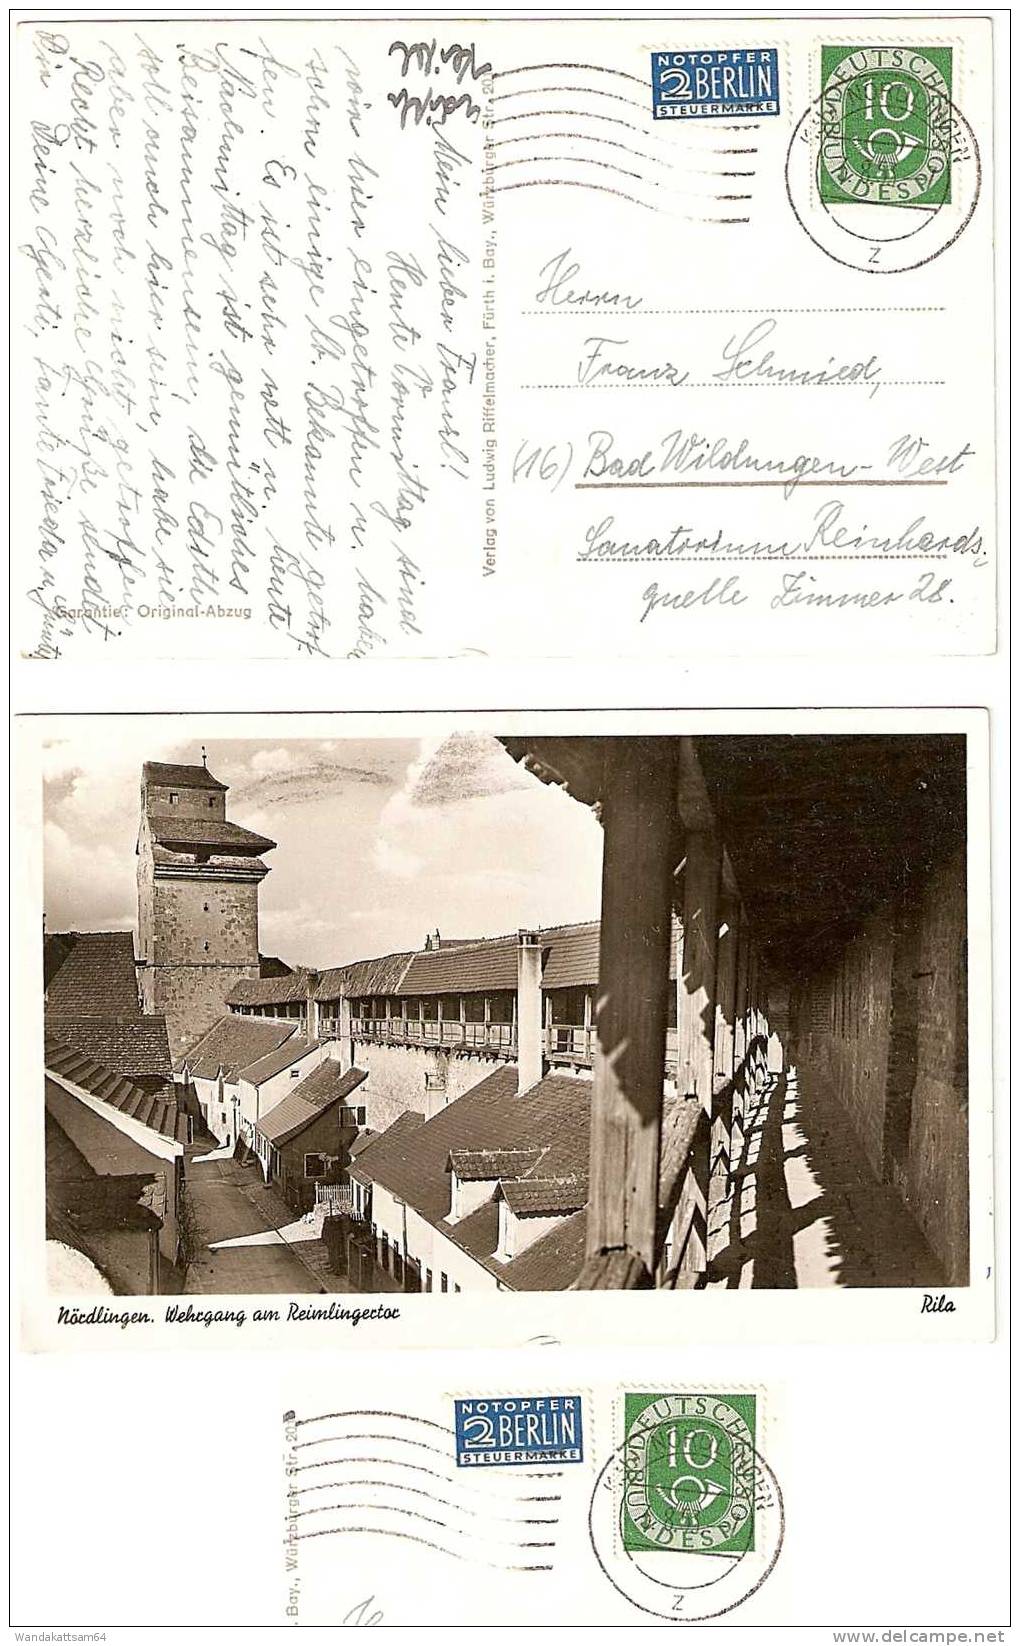 Kei Bd
Mein lieber Franzl!
Heute Vormittag sind
wir hier eingetroffen u. haben
schon einige lb. Bekannte getrof-
fen. Es ist sehr nett u. heute
Nachmittag ist gemütliches
Beisammensein, die
soll auch hier sein, habe sie
aber noch nicht getroffen
Recht herzliche Grüße sendet
Dir Deine Gerti, Tante Frieda u.
Garantie: Original-Abzug
Verlag von Ludwig Riffelmacher, Fürth i. Bay., Würzburger Str. 20
NOTOPFER
2 BERLIN
STEUERMARKE
DEUTSCHE
BUNDESPOST
10
NÖRDLINGEN
Z
Herrn
Franz Schmied,
(16) Bad Wildungen-West
Sanatorium Reinhards-
quelle Zimmer 28.
Nördlingen. Wehrgang am Reimlingertor
Rila
Bay., Würzburger Str. 20
NOTOPFER
2 BERLIN
STEUERMARKE
DEUTSCHE
BUNDESPOST
10
NÖRDLINGEN
Z
Wandakattsam64
www.delcampe.net